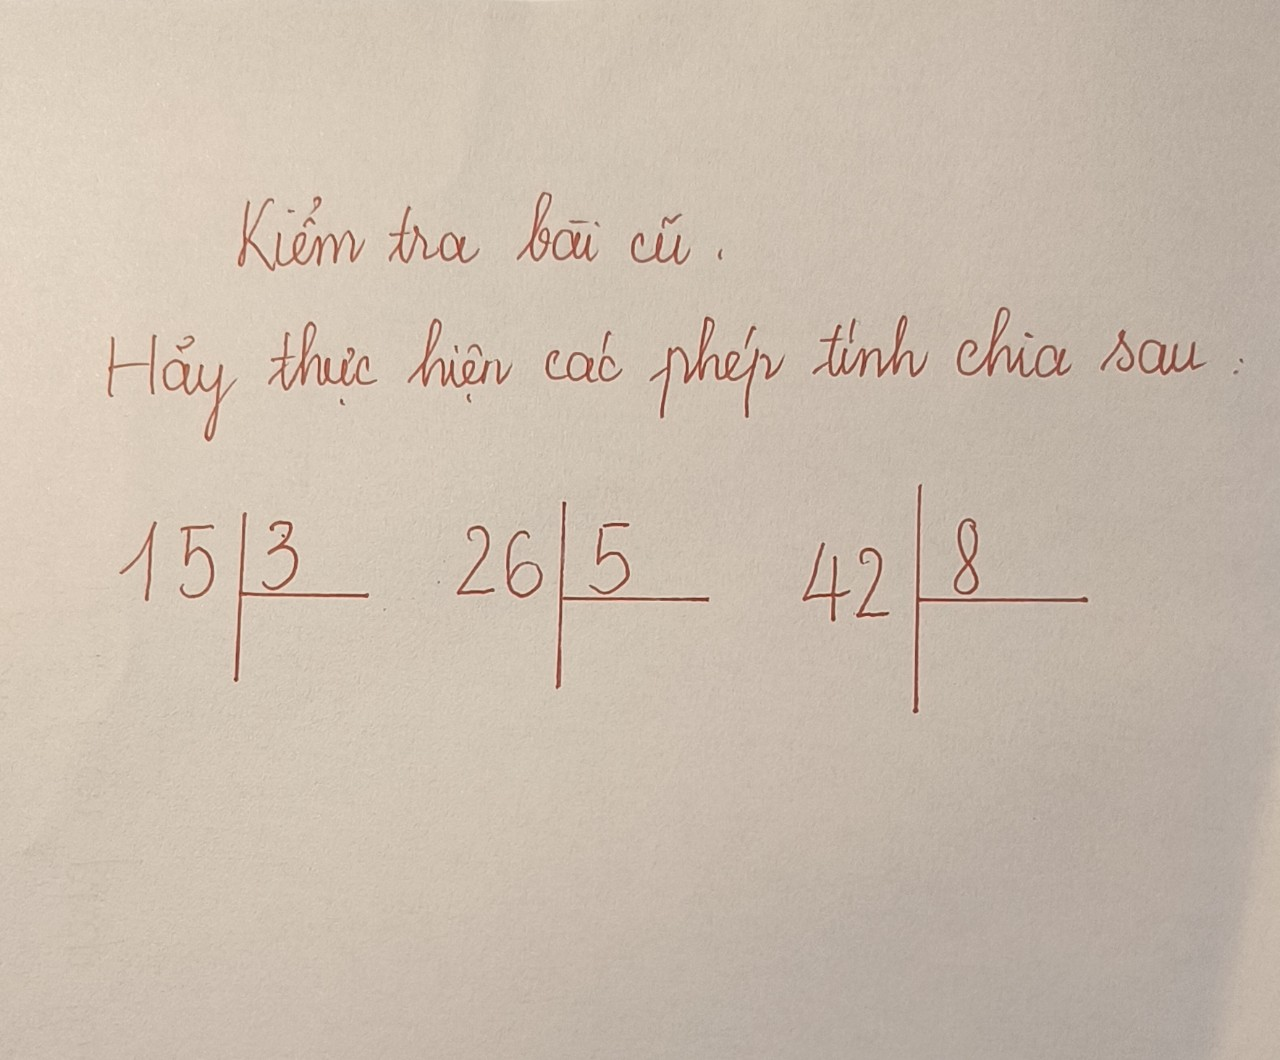 Kiểm tra bài cũ.
Hảy thực hiện các phép tính chia sau:
15 3 26 5 42 8